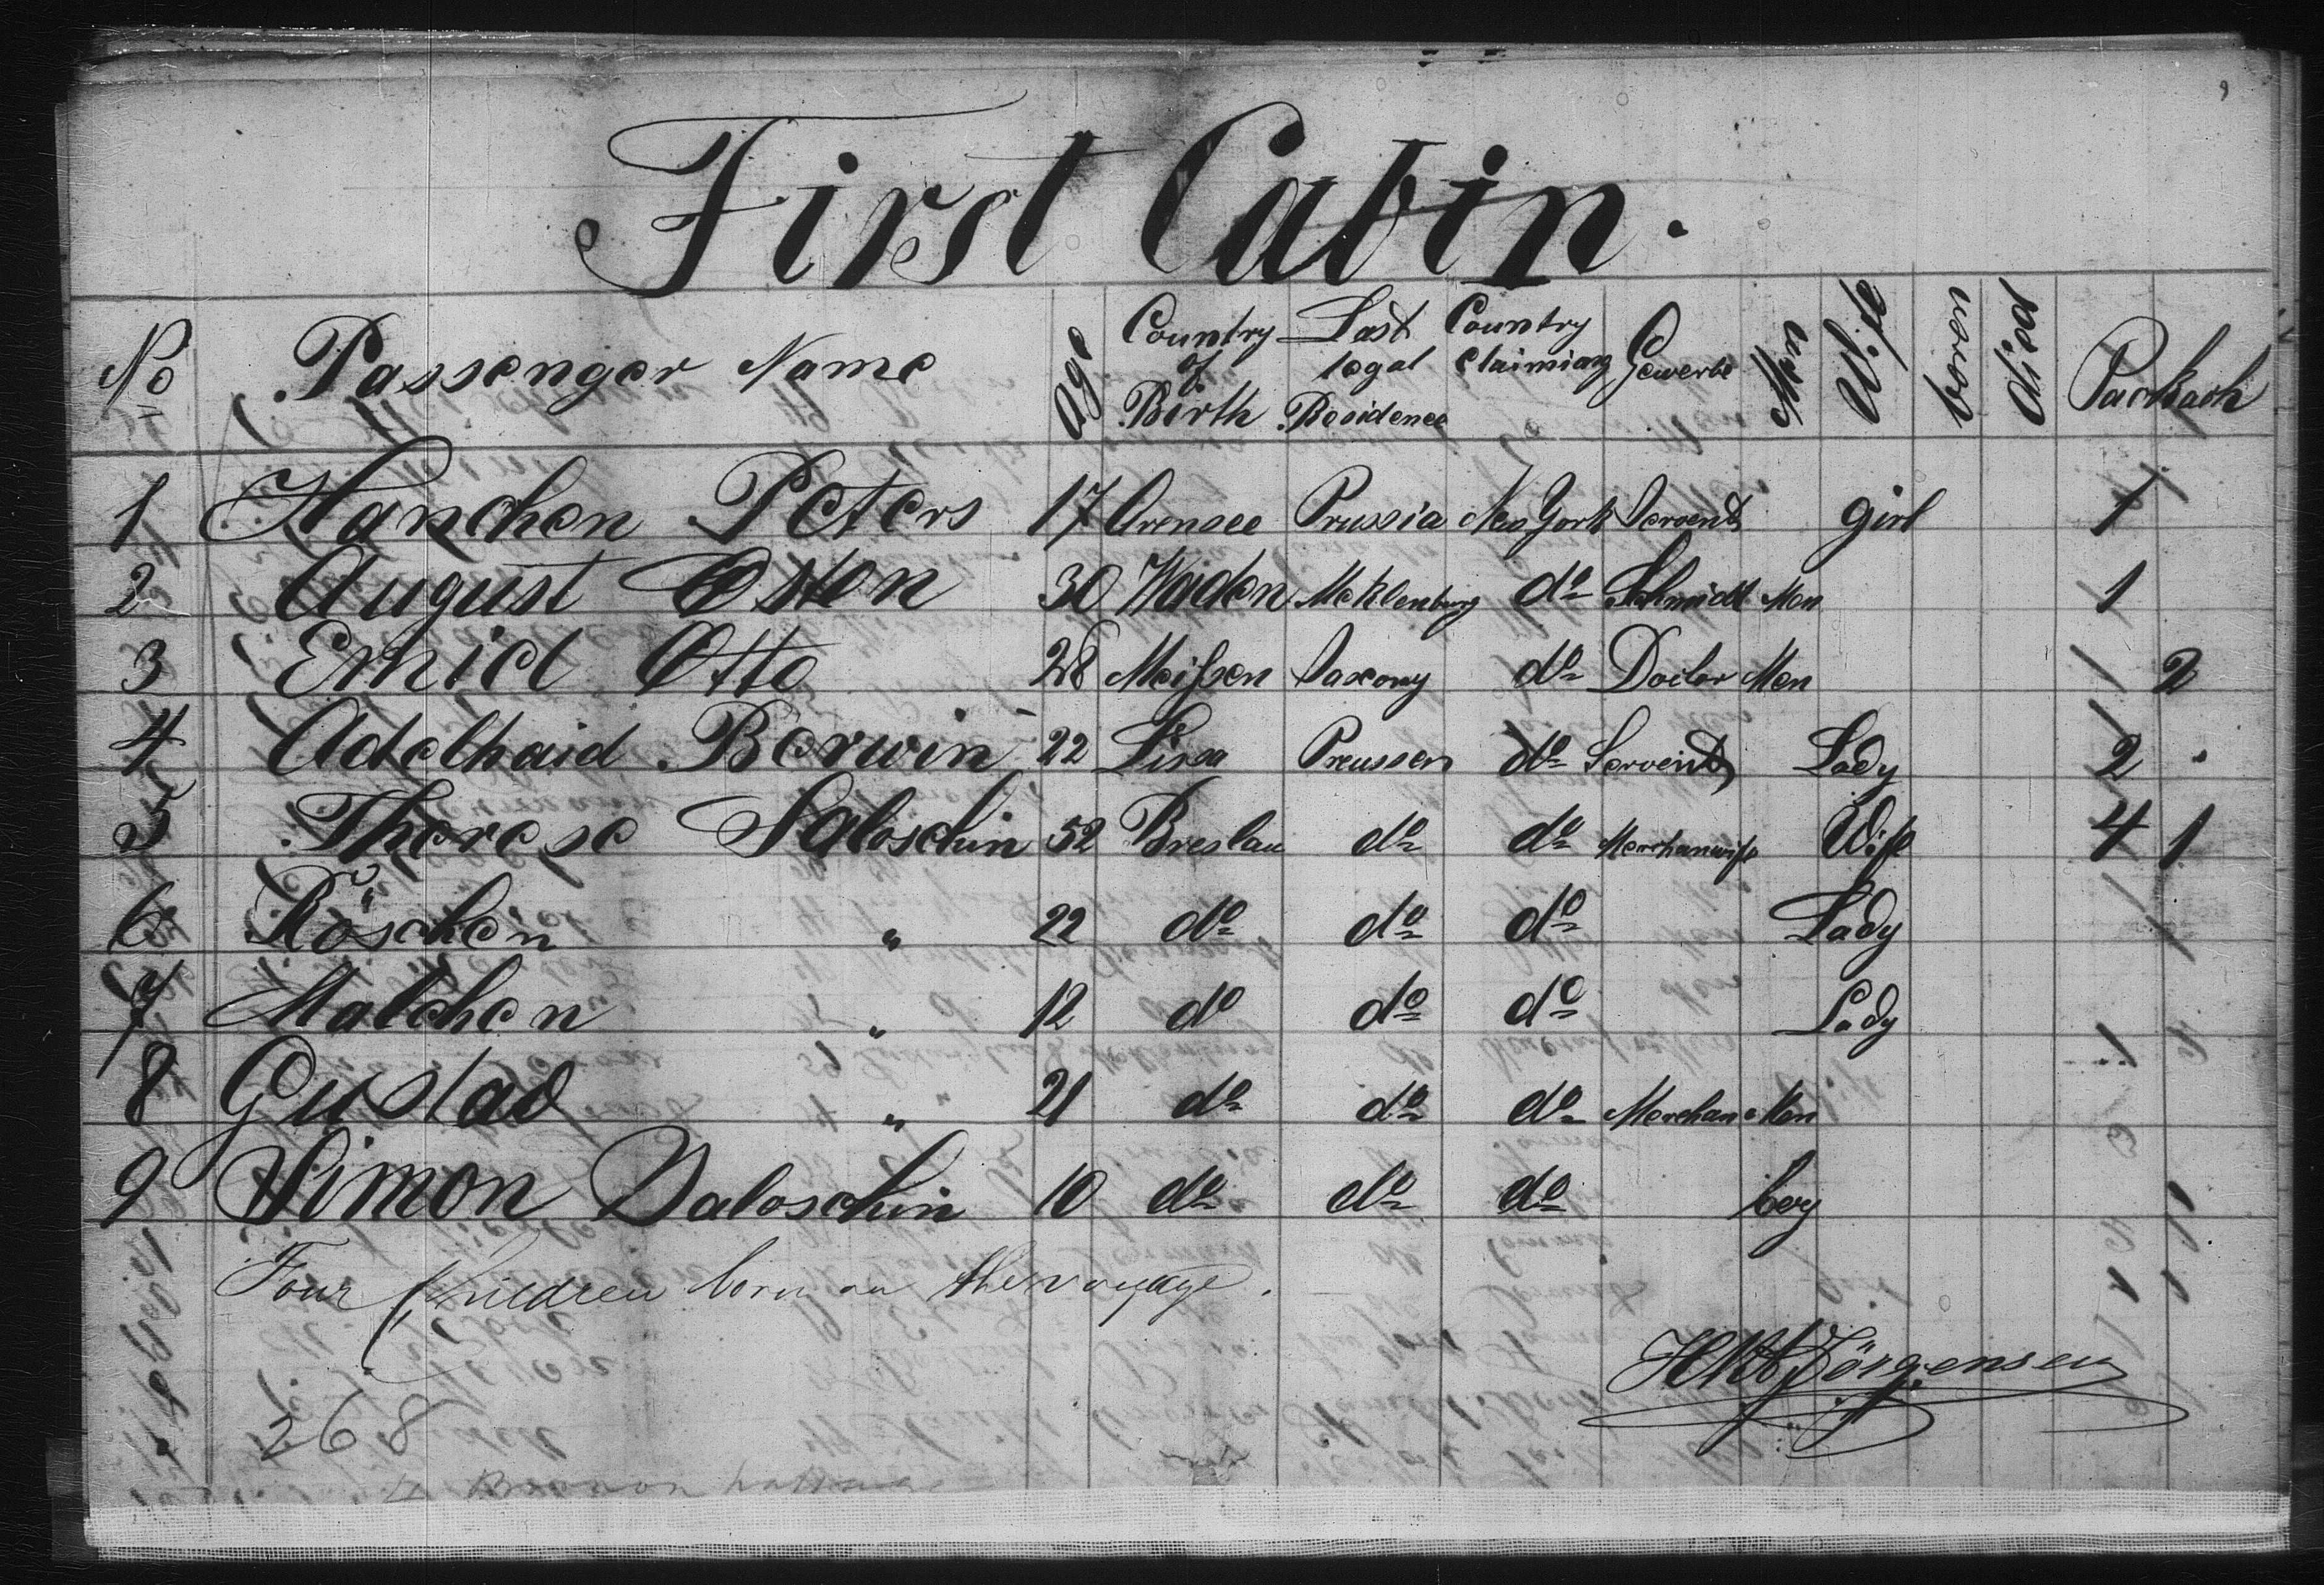 First Cabin.
No Passenger Name Age Country of Birth Last legal Residence Country claiming Gewerbe Men Wife boren died Packach
1 Hanchen Peters 17 Arensee Prussia New York Servent girl 1
2 August Osten 30 Waden Meklenburg do Schmidt Men 1
3 Emiel Otto 28 Meißen Saxony do Doctor Men 2
4 Adelhaid Berwin 22 Lissa Preussen do Servent Lady 2
5 Therese Saloschin 52 Breslau do do Merchanwife Wife 4 1
6 Röschen " 22 do do do Lady
7 Malchen " 12 do do do Lady
8 Gustav " 21 do do do Merchan Men
9 Simon Saloschin 10 do do do boy
Four Children born on the voyage.
Jörgensen
268